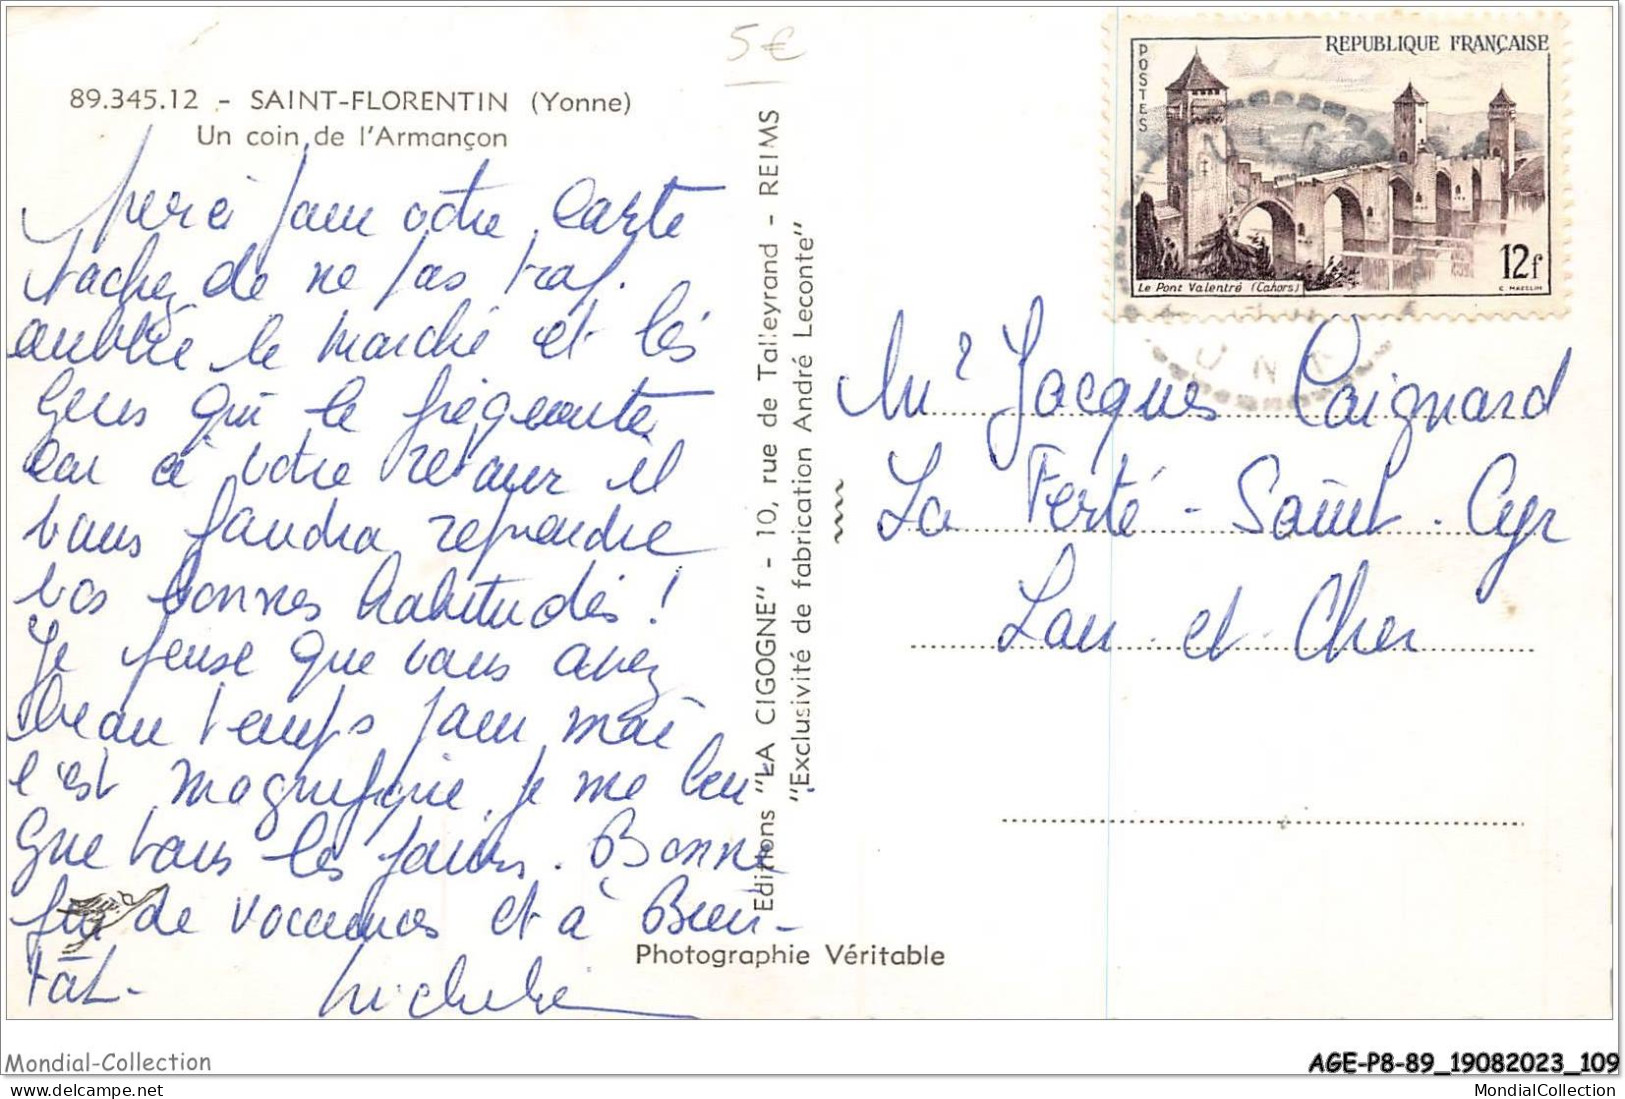 5€
89.345.12 - SAINT-FLORENTIN (Yonne)
Un coin de l'Armançon
Merci pour votre carte
tachez de ne pas trop.
oublié le marché et les
Gens qui le fréquente
car à votre retour il
vous faudra reprendre
vos bonnes habitudes !
Je pense que vous avez
beau temps pour moi
c'est magnifique, je me
que vous les
Bonne
fin de vacances et à Bien-
tôt-
Micheline
Editions "LA CIGOGNE" - 10, rue de Talleyrand - REIMS
"Exclusivité de fabrication André Leconte"
Photographie Véritable
POSTES
REPUBLIQUE FRANÇAISE
12f
Le Pont Valentré (Cahors)
C. MAZELIN
Mr Jacques Caignard
La Ferté - Saint - Cyr
Loir - et - Cher
Mondial-Collection
AGE-P8-89_19082023_109
MondialCollection